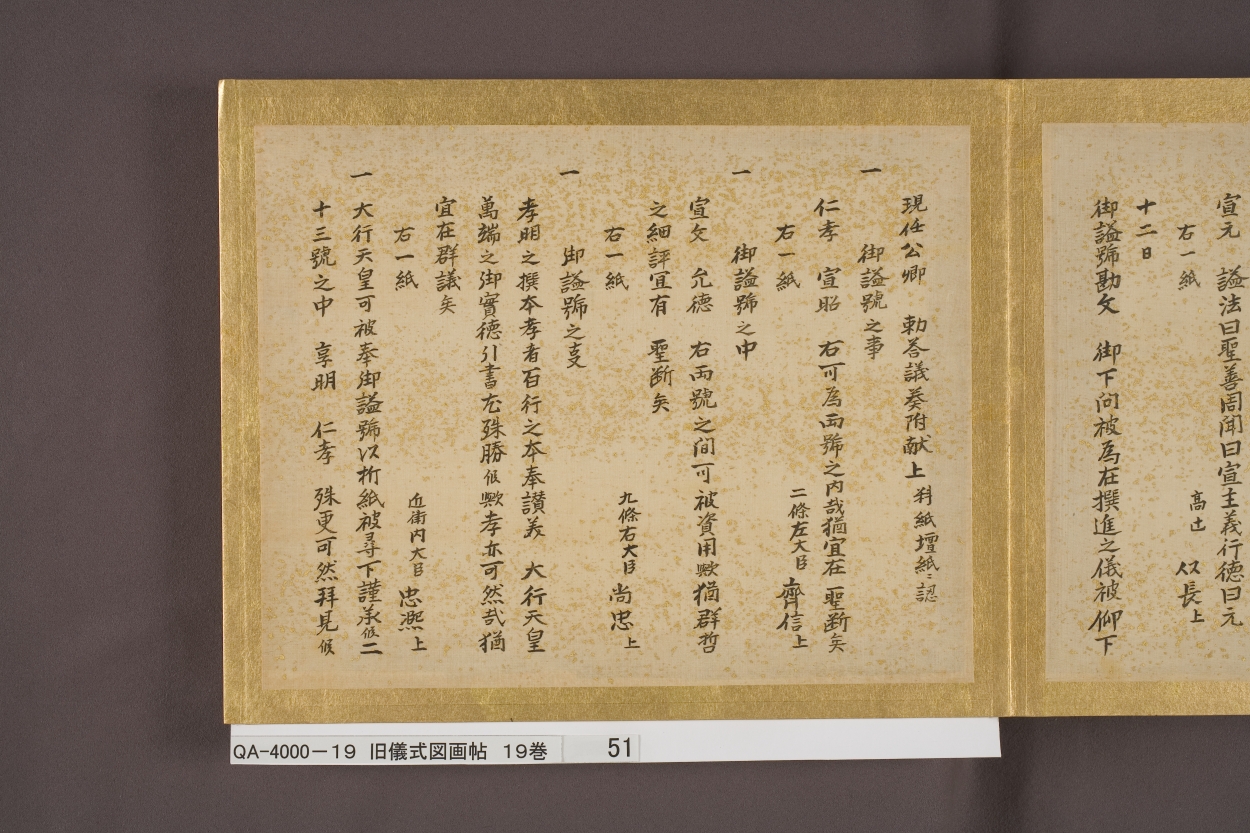 宣元　諡法曰聖善周聞曰宣主義行徳曰元
右一紙　髙辻　以長上
十二日
御諡號勘文　御下問被為在撰進之儀被仰下
現任公卿　勅答議奏附献上　料紙壇紙ニ認
一　御諡號之事
仁孝　宣昭　右可為両號之内哉猶宜在　聖断矣
右一紙　二條左大臣　齊信上
一　御諡號之中
宣文　允德　右両號之間可被資用歟猶群哲
之細評宜有　聖断矣
右一紙　九條右大臣　尚忠上
一　御諡號之支
孝明之撰本孝者百行之本奉讃美　大行天皇
萬端之御實德引書尤殊勝候歟孝亦可然哉猶
宜在群議矣
右一紙　近衛内大臣　忠熈上
一　大行天皇可被奉御諡號以折紙被尋下謹承候二
十三號之中　享明　仁孝　殊更可然拝見候
QA-4000-19　旧儀式図画帖　19巻　51